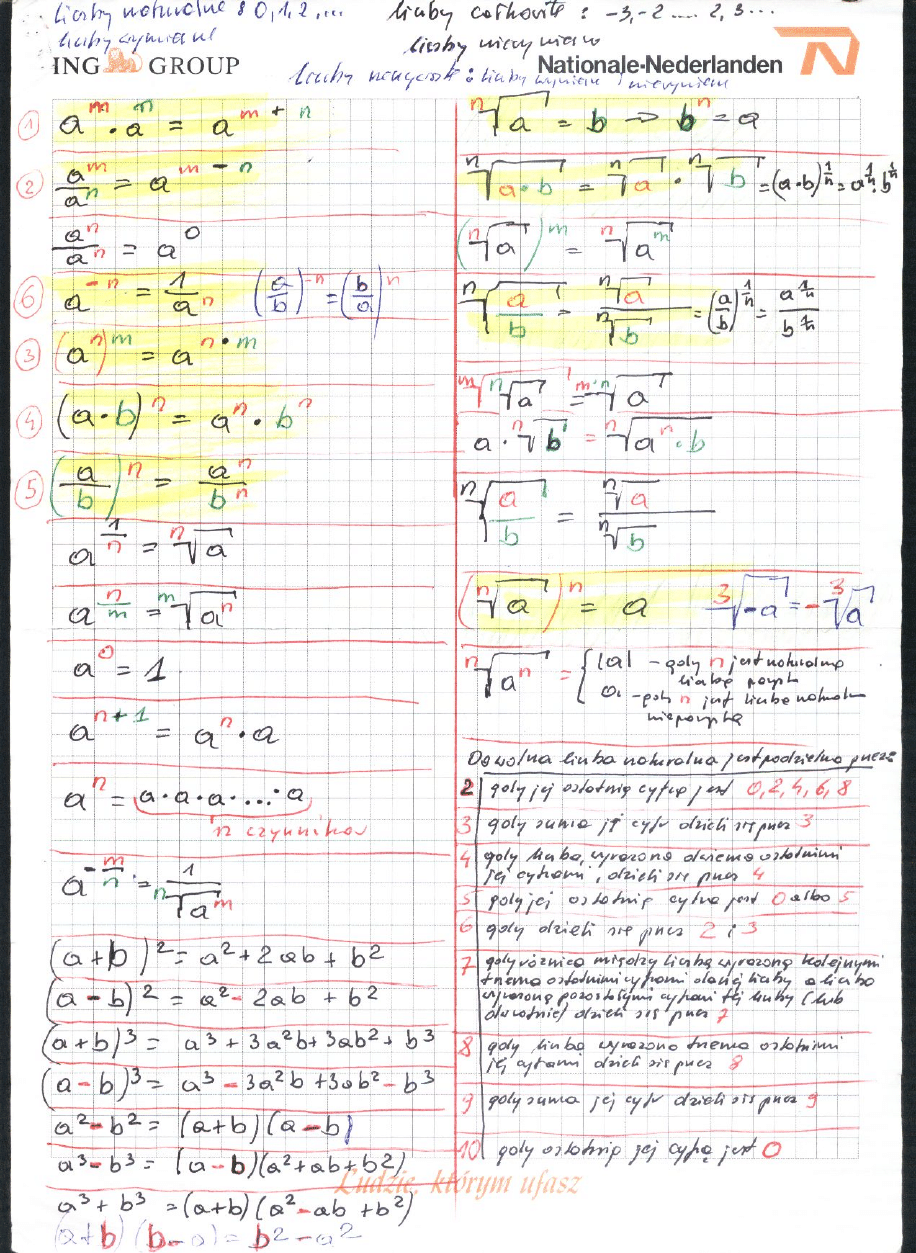 liczby naturalne : 0, 1, 2, ... liczby całkowite : -3, -2 .... 2, 3 ...
liczby wymierne liczby niewymierne
ING GROUP Nationale-Nederlanden
liczby rzeczywiste : liczby wymierne i niewymierne
① a^m · a^n = a^(m+n)
② a^m/a^n = a^(m-n)
a^n/a^n = a^0
⑥ a^(-n) = 1/a^n (a/b)^(-n) = (b/a)^n
③ (a^n)^m = a^(n·m)
④ (a·b)^n = a^n · b^n
⑤ (a/b)^n = a^n/b^n
a^(1/n) = ⁿ√a
a^(n/m) = ᵐ√(a^n)
a^0 = 1
a^(n+1) = a^n · a
a^n = a·a·a·...·a
n czynników
a^(-m/n) = 1/ⁿ√(a^m)
(a+b)² = a² + 2ab + b²
(a-b)² = a² - 2ab + b²
(a+b)³ = a³ + 3a²b + 3ab² + b³
(a-b)³ = a³ - 3a²b + 3ab² - b³
a² - b² = (a+b)(a-b)
a³ - b³ = (a-b)(a²+ab+b²)
a³ + b³ = (a+b)(a²-ab+b²)
(a+b)(b-a) = b² - a²
ⁿ√a = b → b^n = a
ⁿ√(a·b) = ⁿ√a · ⁿ√b = (a·b)^(1/n) = a^(1/n) · b^(1/n)
(ⁿ√a)^m = ⁿ√(a^m)
ⁿ√(a/b) = ⁿ√a/ⁿ√b = (a/b)^(1/n) = a^(1/n)/b^(1/n)
ᵐ√(ⁿ√a) = ᵐ·ⁿ√a
a · ⁿ√b = ⁿ√(a^n · b)
ⁿ√(a/b) = ⁿ√a/ⁿ√b
(ⁿ√a)^n = a ³√(-a) = -³√a
ⁿ√(a^n) = { |a| - gdy n jest naturalną
liczbą parzystą
a - gdy n jest liczbą naturalną
nieparzystą
Dowolna liczba naturalna jest podzielna przez
2 gdy jej ostatnią cyfrą jest 0, 2, 4, 6, 8
3 gdy suma jej cyfr dzieli się przez 3
4 gdy liczba, wyrażona dwiema ostatnimi
jej cyframi, dzieli się przez 4
5 gdy jej ostatnią cyfrą jest 0 albo 5
6 gdy dzieli się przez 2 i 3
7 gdy różnica między liczbą wyrażoną kolejnymi
trzema ostatnimi cyframi danej liczby a liczbą
wyrażoną pozostałymi cyframi tej liczby (lub
odwrotnie) dzieli się przez 7
8 gdy liczba wyrażona trzema ostatnimi
jej cyframi dzieli się przez 8
9 gdy suma jej cyfr dzieli się przez 9
10 gdy ostatnią jej cyfrą jest 0
Ludzie, którym ufasz